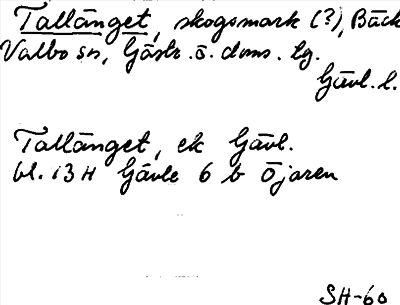 Tallänget, skogsmark (?), Bäck
Valbo sn, Gästr. ö. doms. lg.
Gävl. l.
Tallänget, ek Gävl.
bl. 13 H Gävle 6 b Öjaren
SH-60